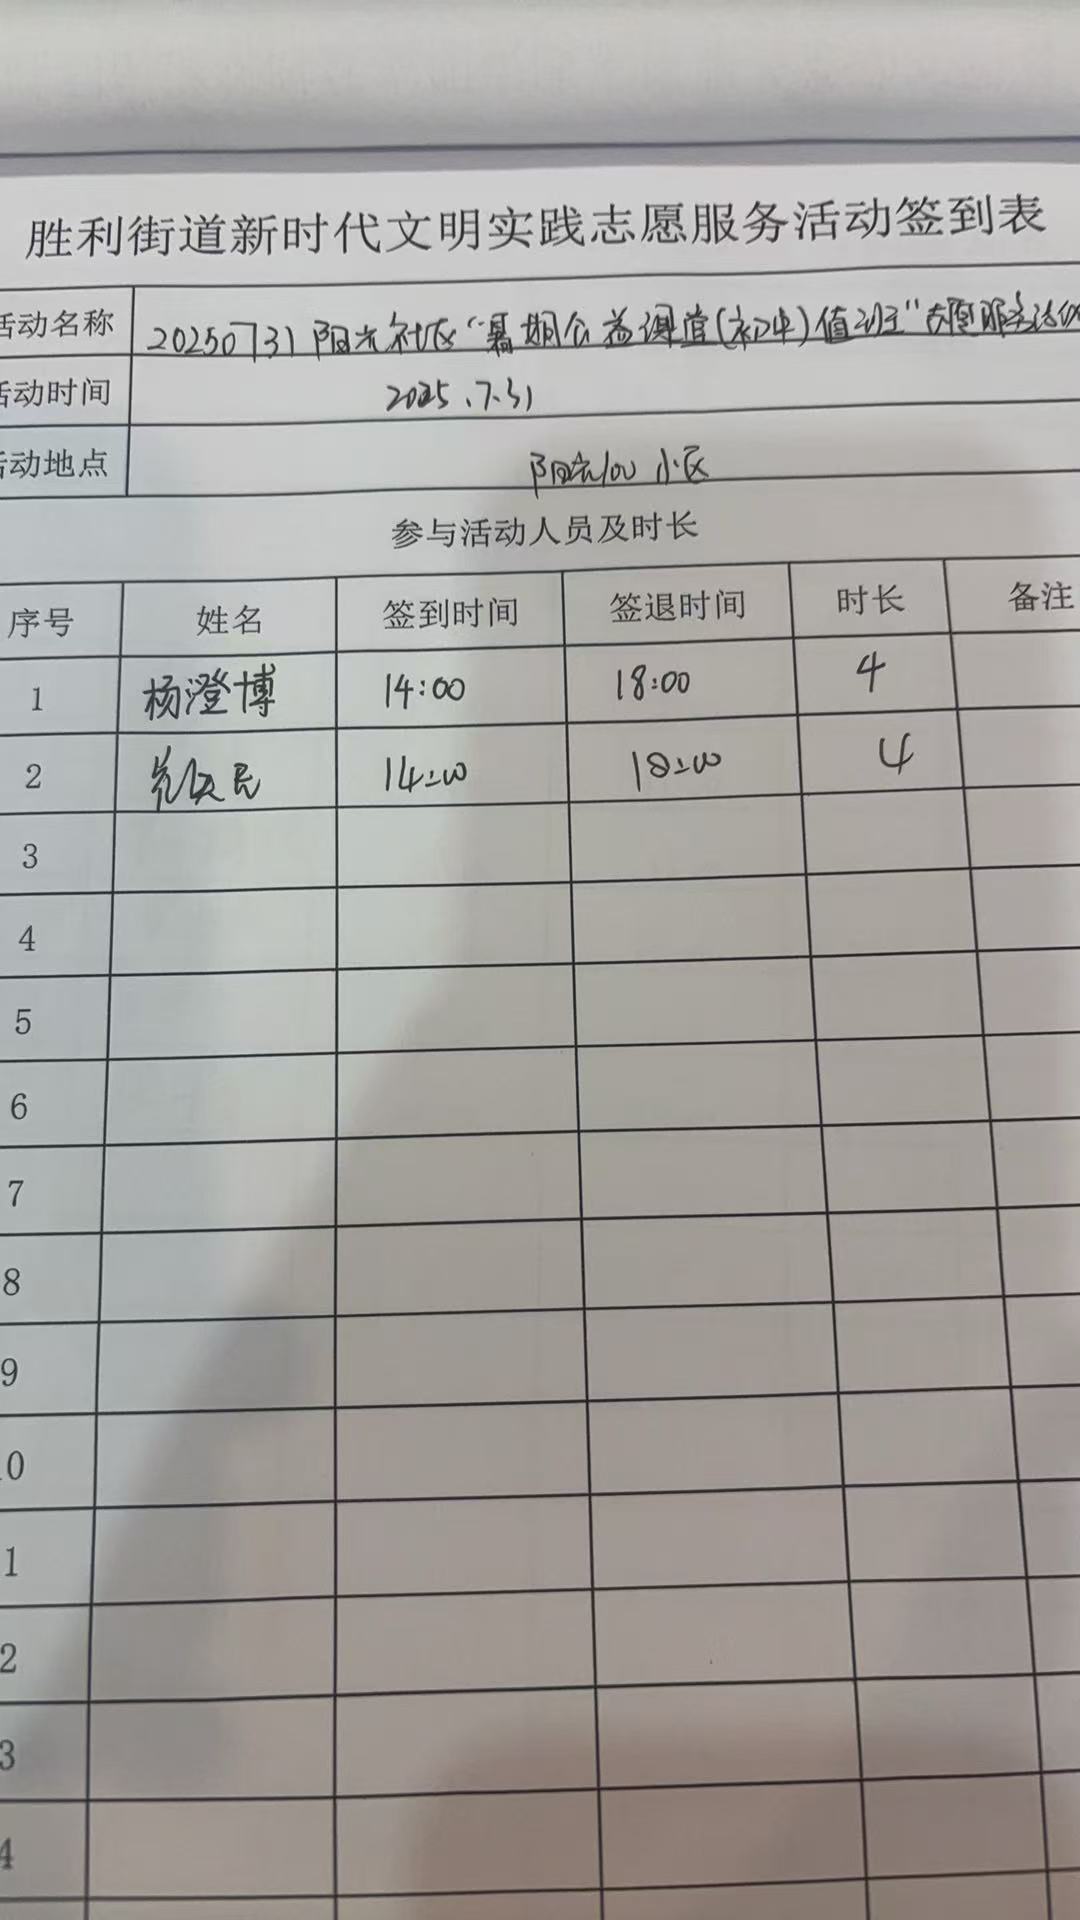 胜利街道新时代文明实践志愿服务活动签到表
活动名称 20250731阳光社区“暑期公益课堂(初中)值班”志愿服务活动
活动时间 2025.7.31
活动地点 阳光100小区
参与活动人员及时长
序号 姓名 签到时间 签退时间 时长 备注
1 杨澄博 14:00 18:00 4
2 民 14:00 18:00 4
3
4
5
6
7
8
9
0
1
2
3
4